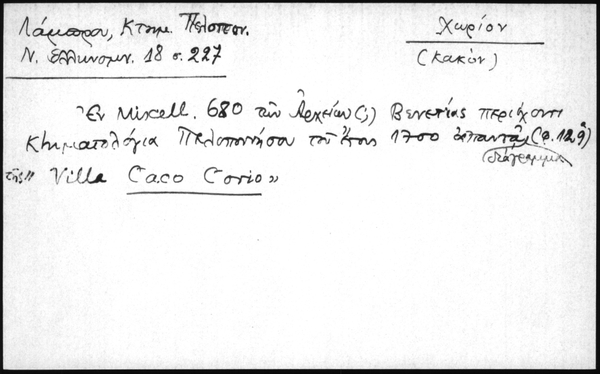 Λάμπρου, Κτημ. Πελοπον.
Ν. Ελληνομν. 18 σ. 227
Χωρίον
(κακόν)
Ἐν Miscell. 680 τῶν Ἀρχείων (;) Βενετίας περιέχοντι
κτηματολόγια Πελοποννήσου τοῦ ἔτους 1700 ἀπαντᾷ (φ. 12, 9)
διάγραμμα
τῆς "Villa Caco Corio"